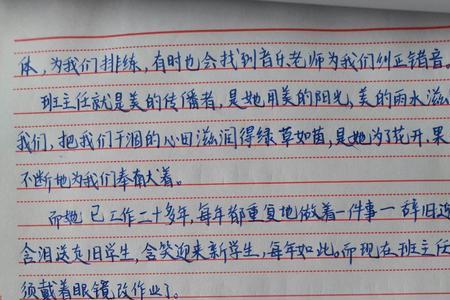 体，为我们排练，有时也会找到音乐老师为我们纠正错音。
班主任就是美的传播者，是她用美的阳光，美的雨水滋
我们，把我们干涸的心田滋润得绿草如茵，是她为了花开、果
不断地为我们奉献着。
而她已工作二十多年，每年都重复地做着一件事——辞旧迎
含泪送走旧学生，含笑迎来新学生，每年如此。而现在班主任
须戴着眼镜改作业了。